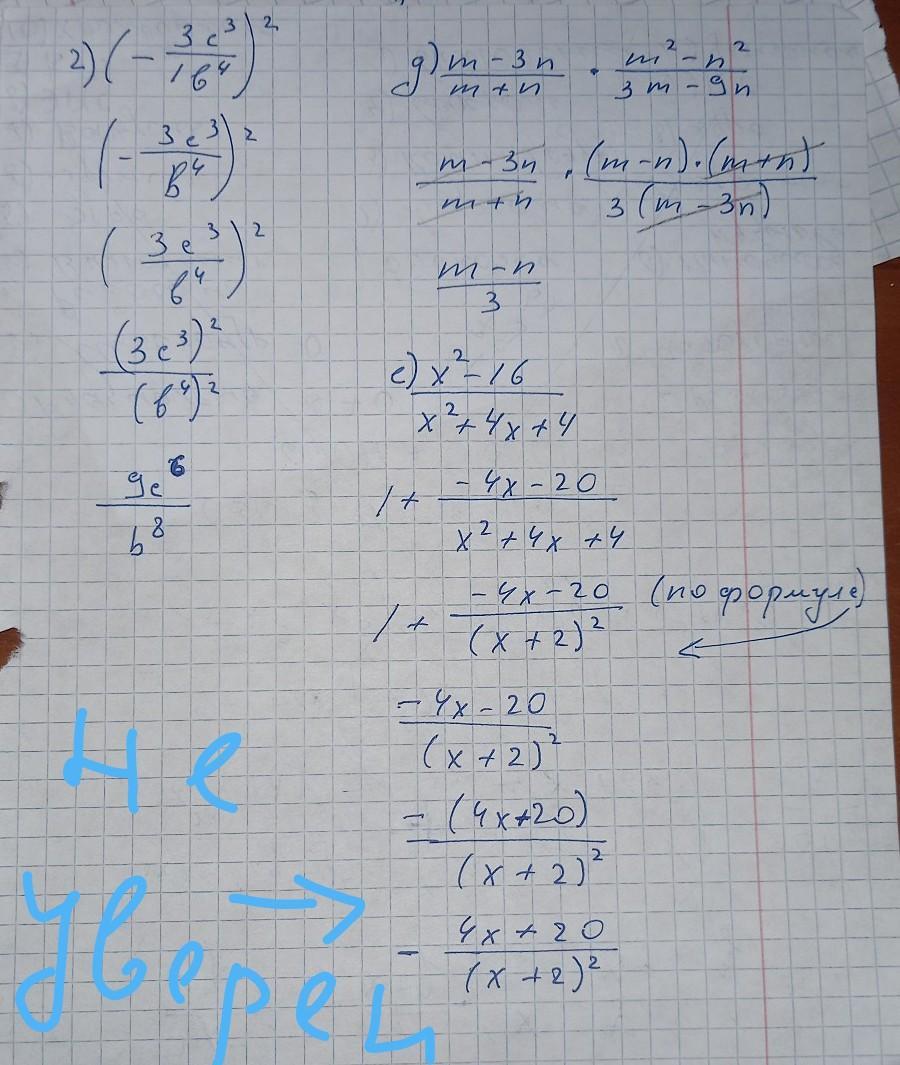 2) (- 3c³/1b⁴)²
(- 3c³/b⁴)²
(3c³/b⁴)²
(3c³)²/(b⁴)²
9c⁶/b⁸
д) m-3n/m+n · m²-n²/3m-9n
m-3n/m+n · (m-n)·(m+n)/3(m-3n)
m-n/3
е) x²-16/x²+4x+4
1+ -4x-20/x²+4x+4
1+ -4x-20/(x+2)² (по формуле)
-4x-20/(x+2)²
-(4x+20)/(x+2)²
- 4x+20/(x+2)²
Не
уверен